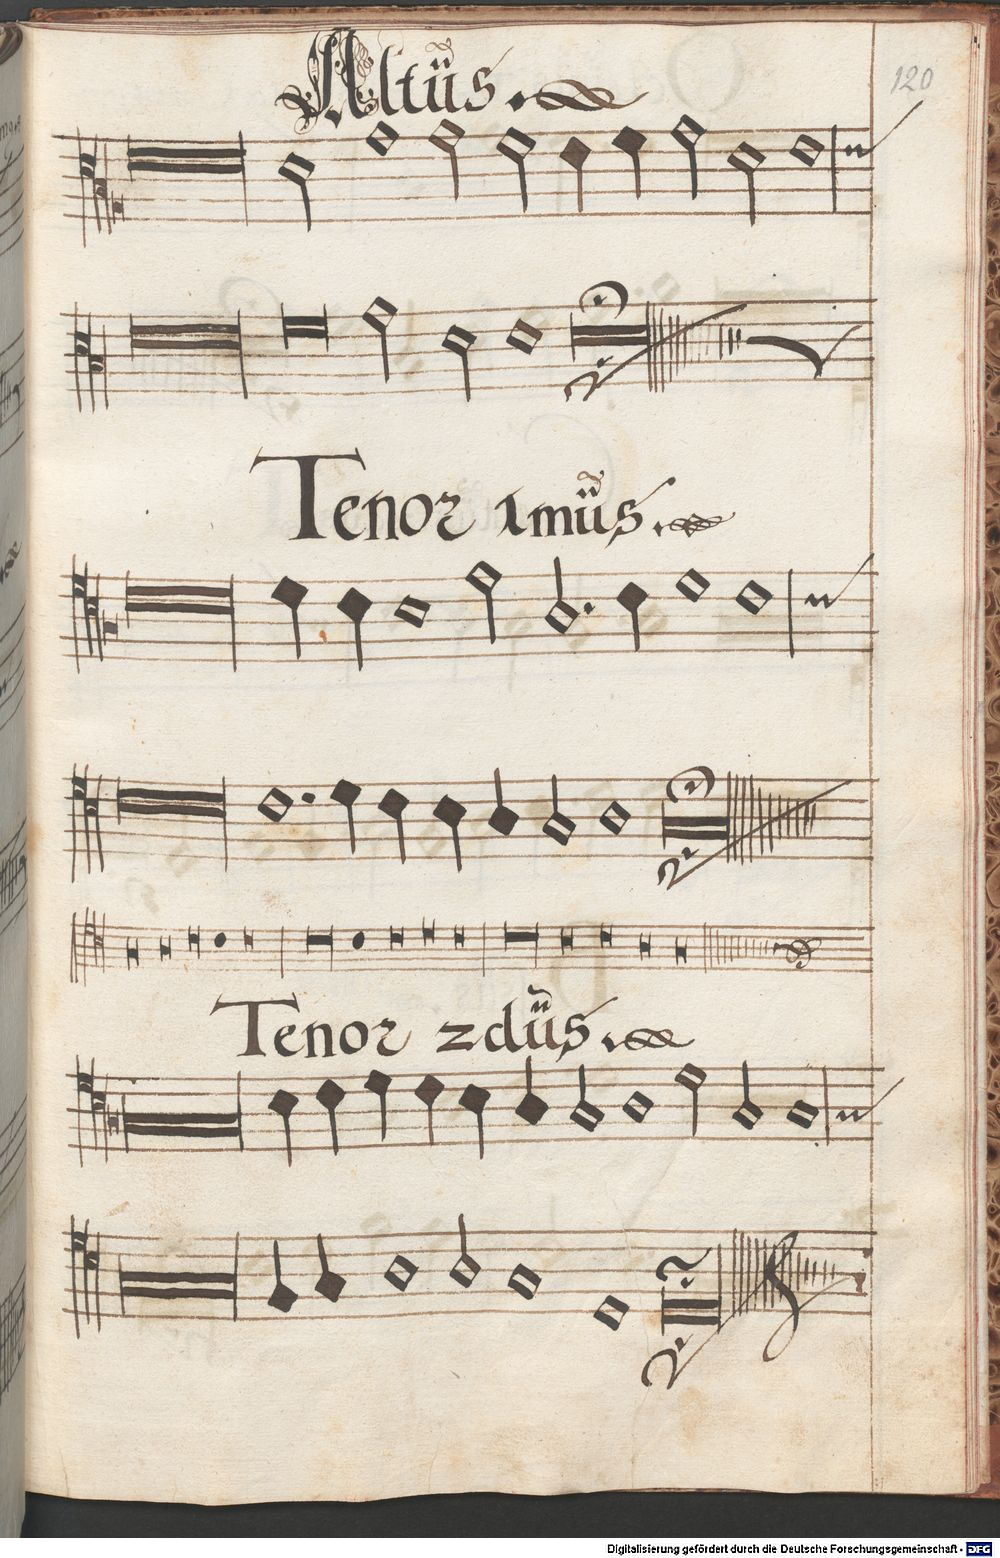 120
Altüs.
Tenor 1müs.
Tenor 2düs.
Digitalisierung gefördert durch die Deutsche Forschungsgemeinschaft - DFG